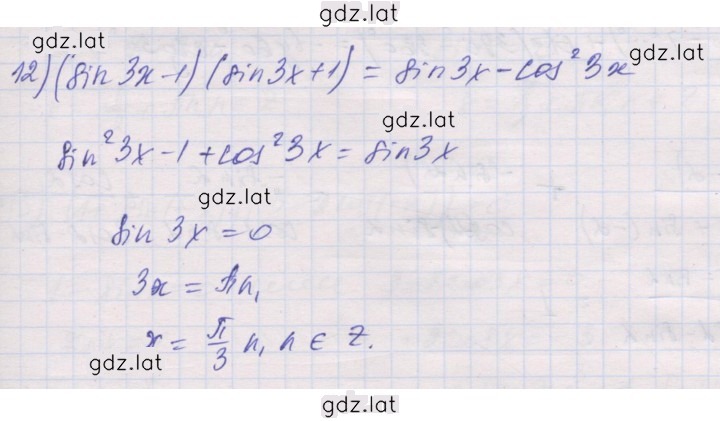 gdz.lat
gdz.lat
12) (sin 3x - 1) (sin 3x + 1) = sin 3x - cos² 3x
gdz.lat
gdz.lat
sin² 3x - 1 + cos² 3x = sin 3x
gdz.lat
sin 3x = 0
3x = πn,
x = π/3 n, n ∈ Z.
gdz.lat
gdz.lat